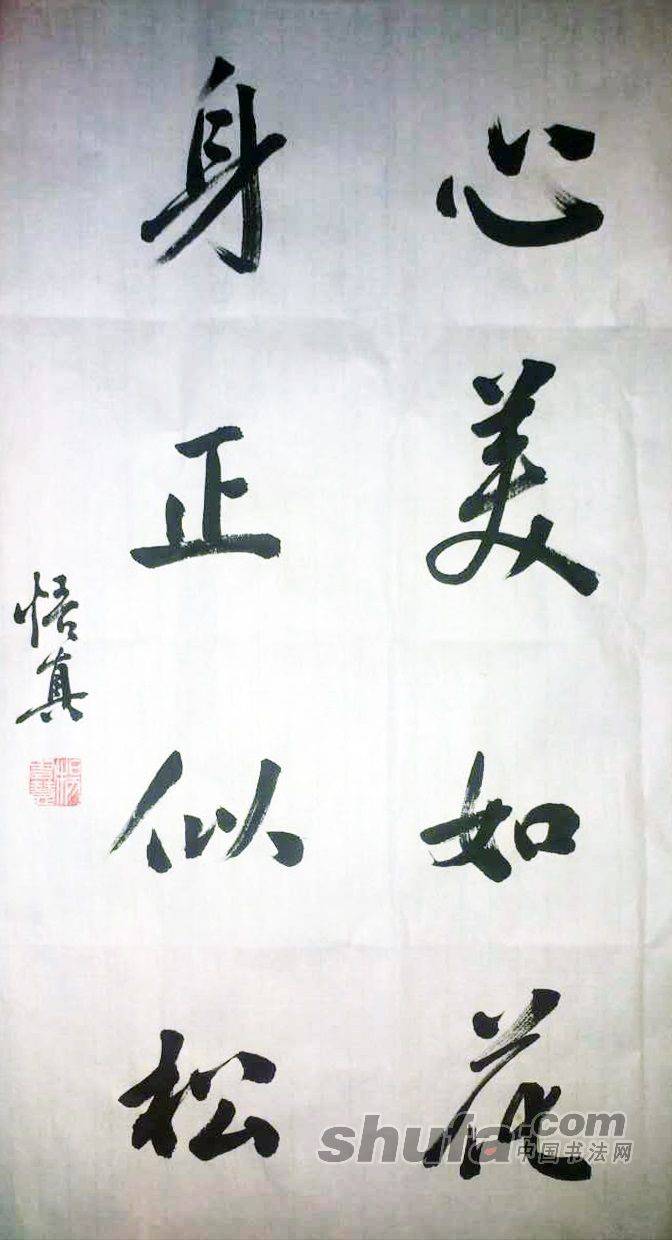 心美如花
身正似松
悟真
shufa.com
中国书法网